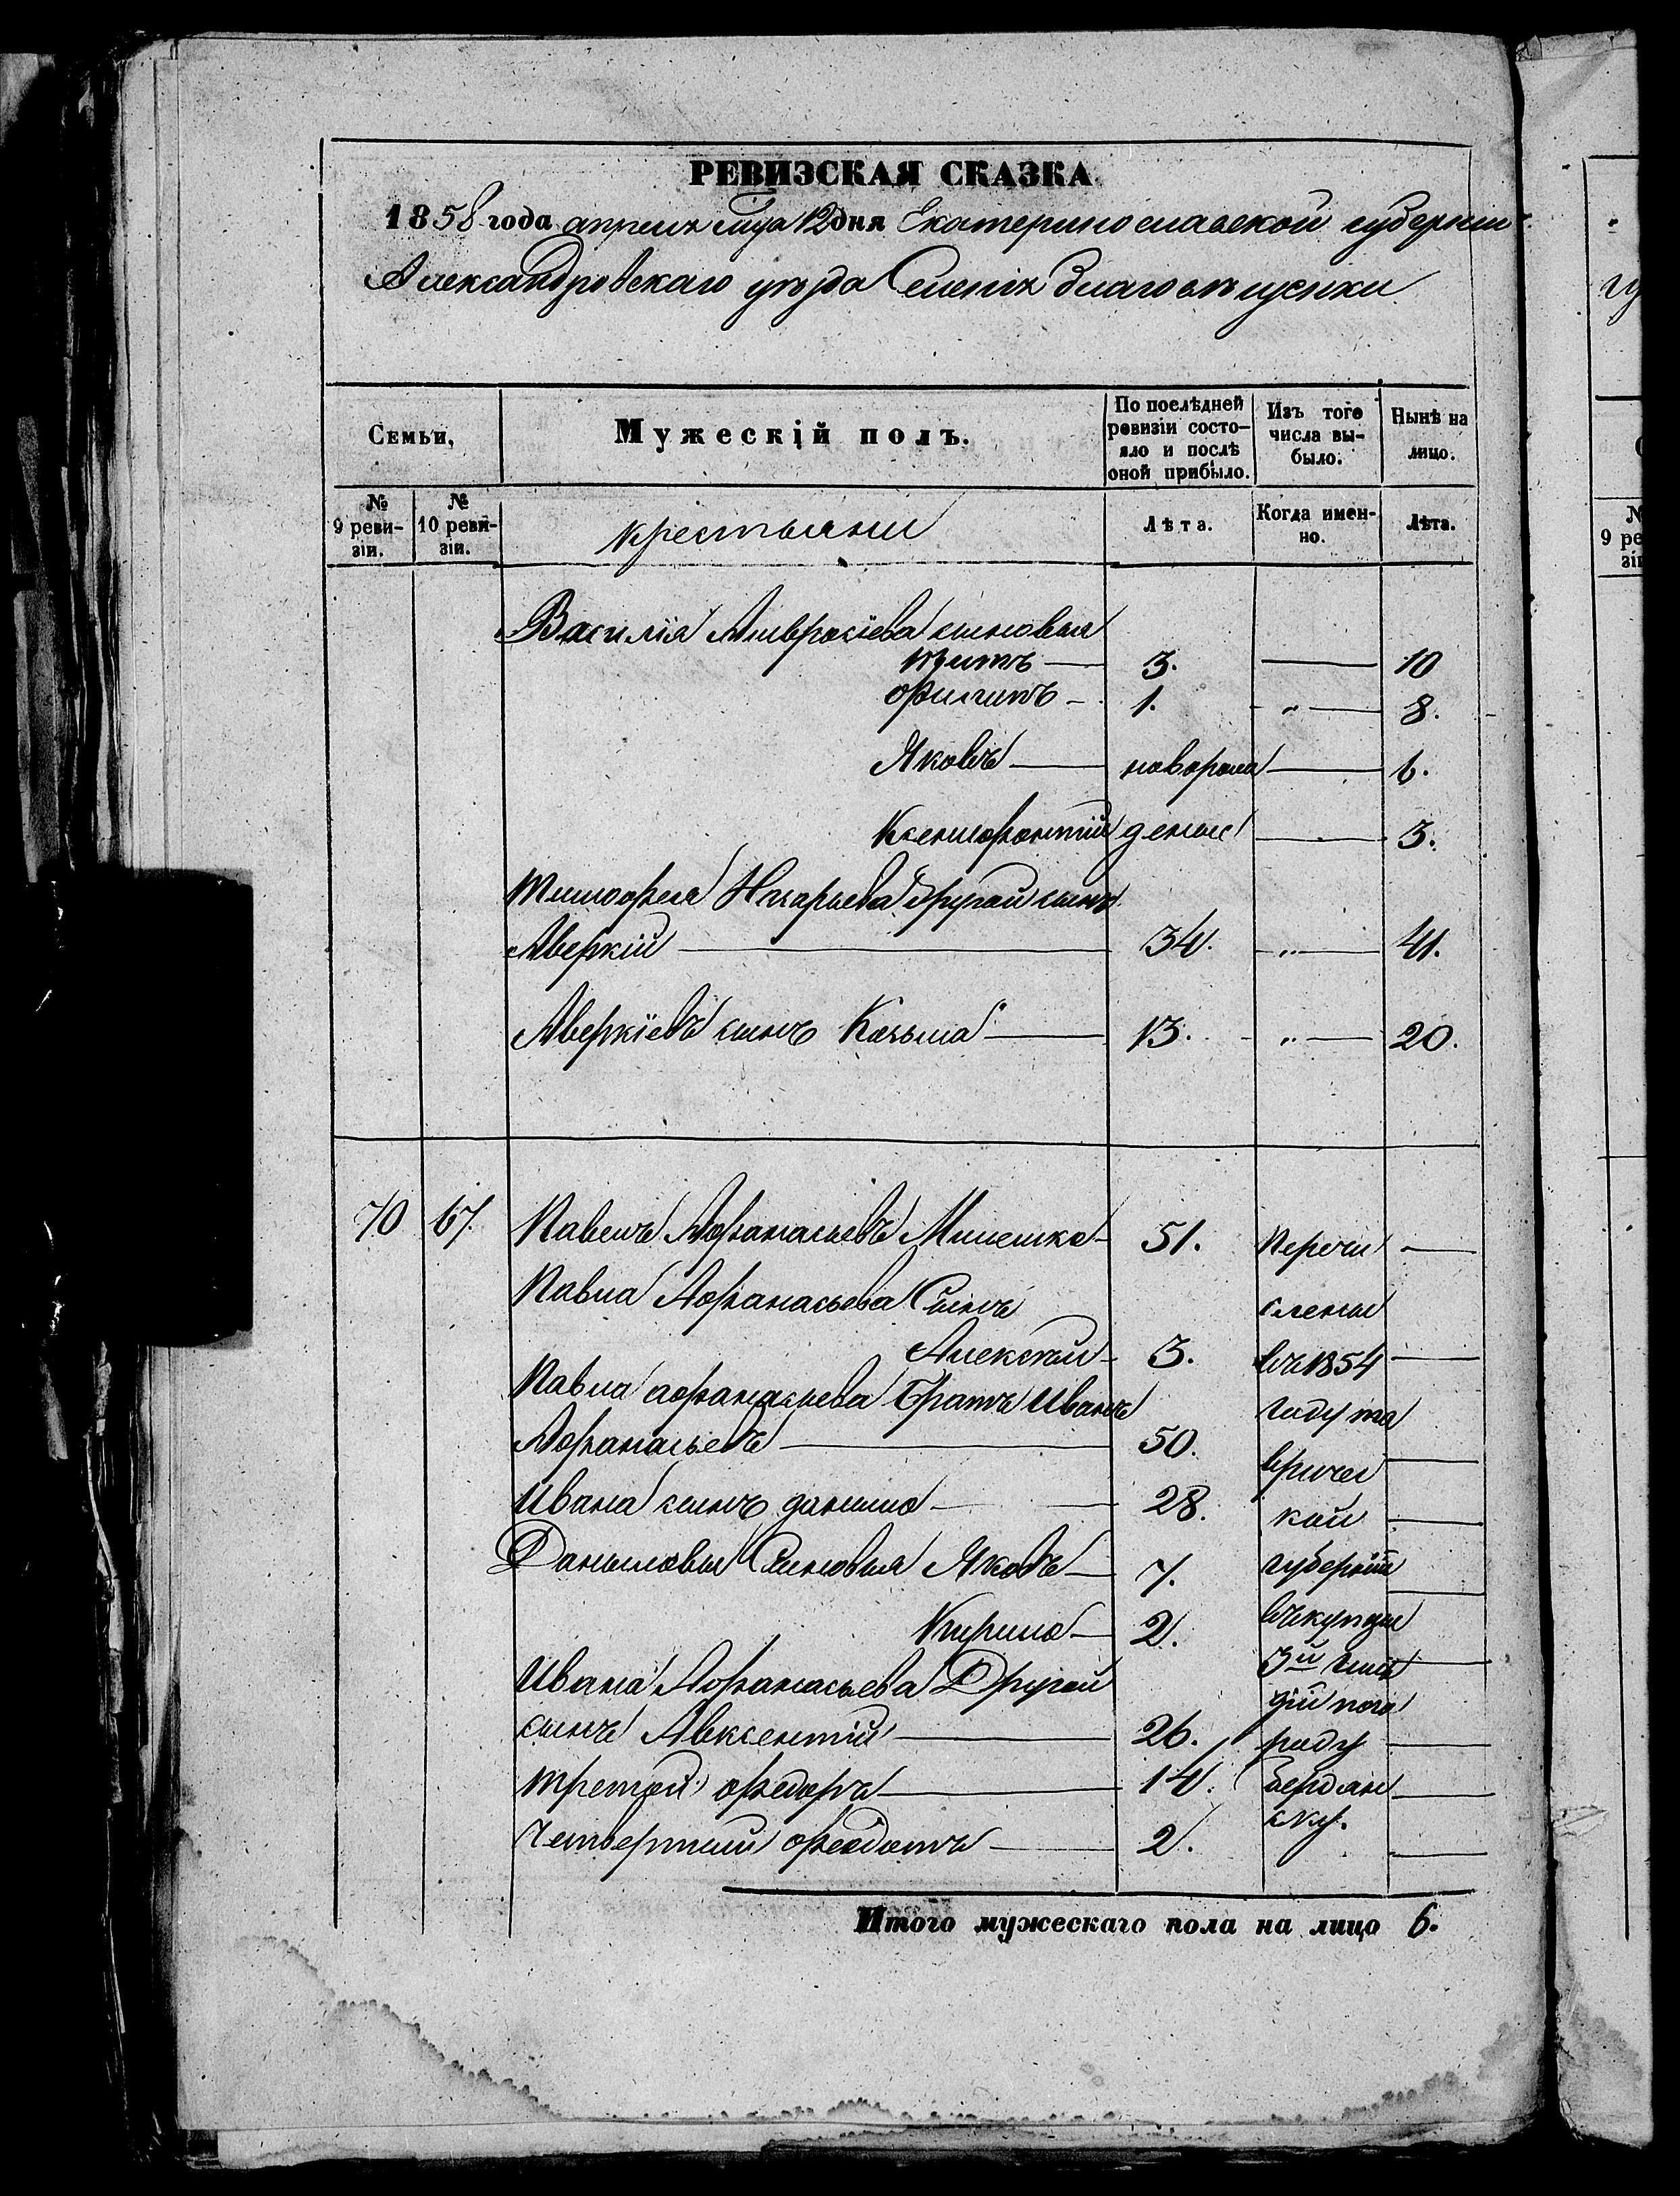 РЕВИЗСКАЯ СКАЗКА
1858 года апреля мца 12 дня Екатеринославской губернии
Александровскаго уезда Селенія Благовещенки
Семьи, Мужескій полъ. По послѣдней ревизіи состояло и послѣ оной прибыло. Изъ того числа выбыло. Нынѣ на лицо.
№ 9 ревизіи. № 10 ревизіи. крестьяни Лѣта. Когда именно. Лѣта.
Василія Амвросіева сыновья
титъ 3. 10
филипъ 1. " 8.
Яковъ новорож 6.
Ксенофонтій деные 3.
тимофея Назарьева другой сынъ
Аверкій 34. " 41.
Аверкіевъ сынъ Козьма 13. " 20.
70 67. Павелъ Афанасьевъ 51. Перечи
Павла Афанасьева Сынъ слены
Алексей 3. въ 1854
Павла афанасьева братъ Иванъ году та
Афанасьевъ 50. вричес
Ивана сынъ данило 28. кой
Даниловы Сыновья Яковъ 7. губерніи
Кирило 2. въ купцы
Ивана Афанасьева Другой 3й гиль
сынъ Авксентій 26. дій по го
третой федоръ 14. роду Бердян
Четвертый федотъ 2. ску.
Итого мужескаго пола на лицо 6.